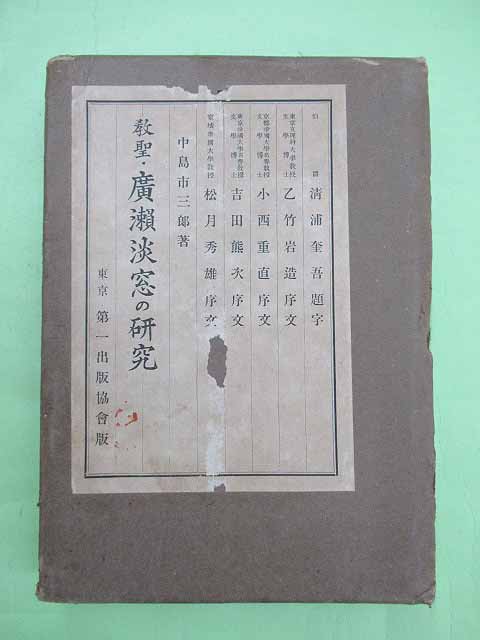 伯爵 清浦奎吾題字
東京文理科大學教授 文學博士 乙竹岩造序文
京都帝國大學名譽教授 文學博士 小西重直序文
東京帝國大學名譽教授 文學博士 吉田熊次序文
京城帝國大學教授 松月秀雄序文
中島市三郎著
教聖・廣瀨淡窓の研究
東京 第一出版協會版